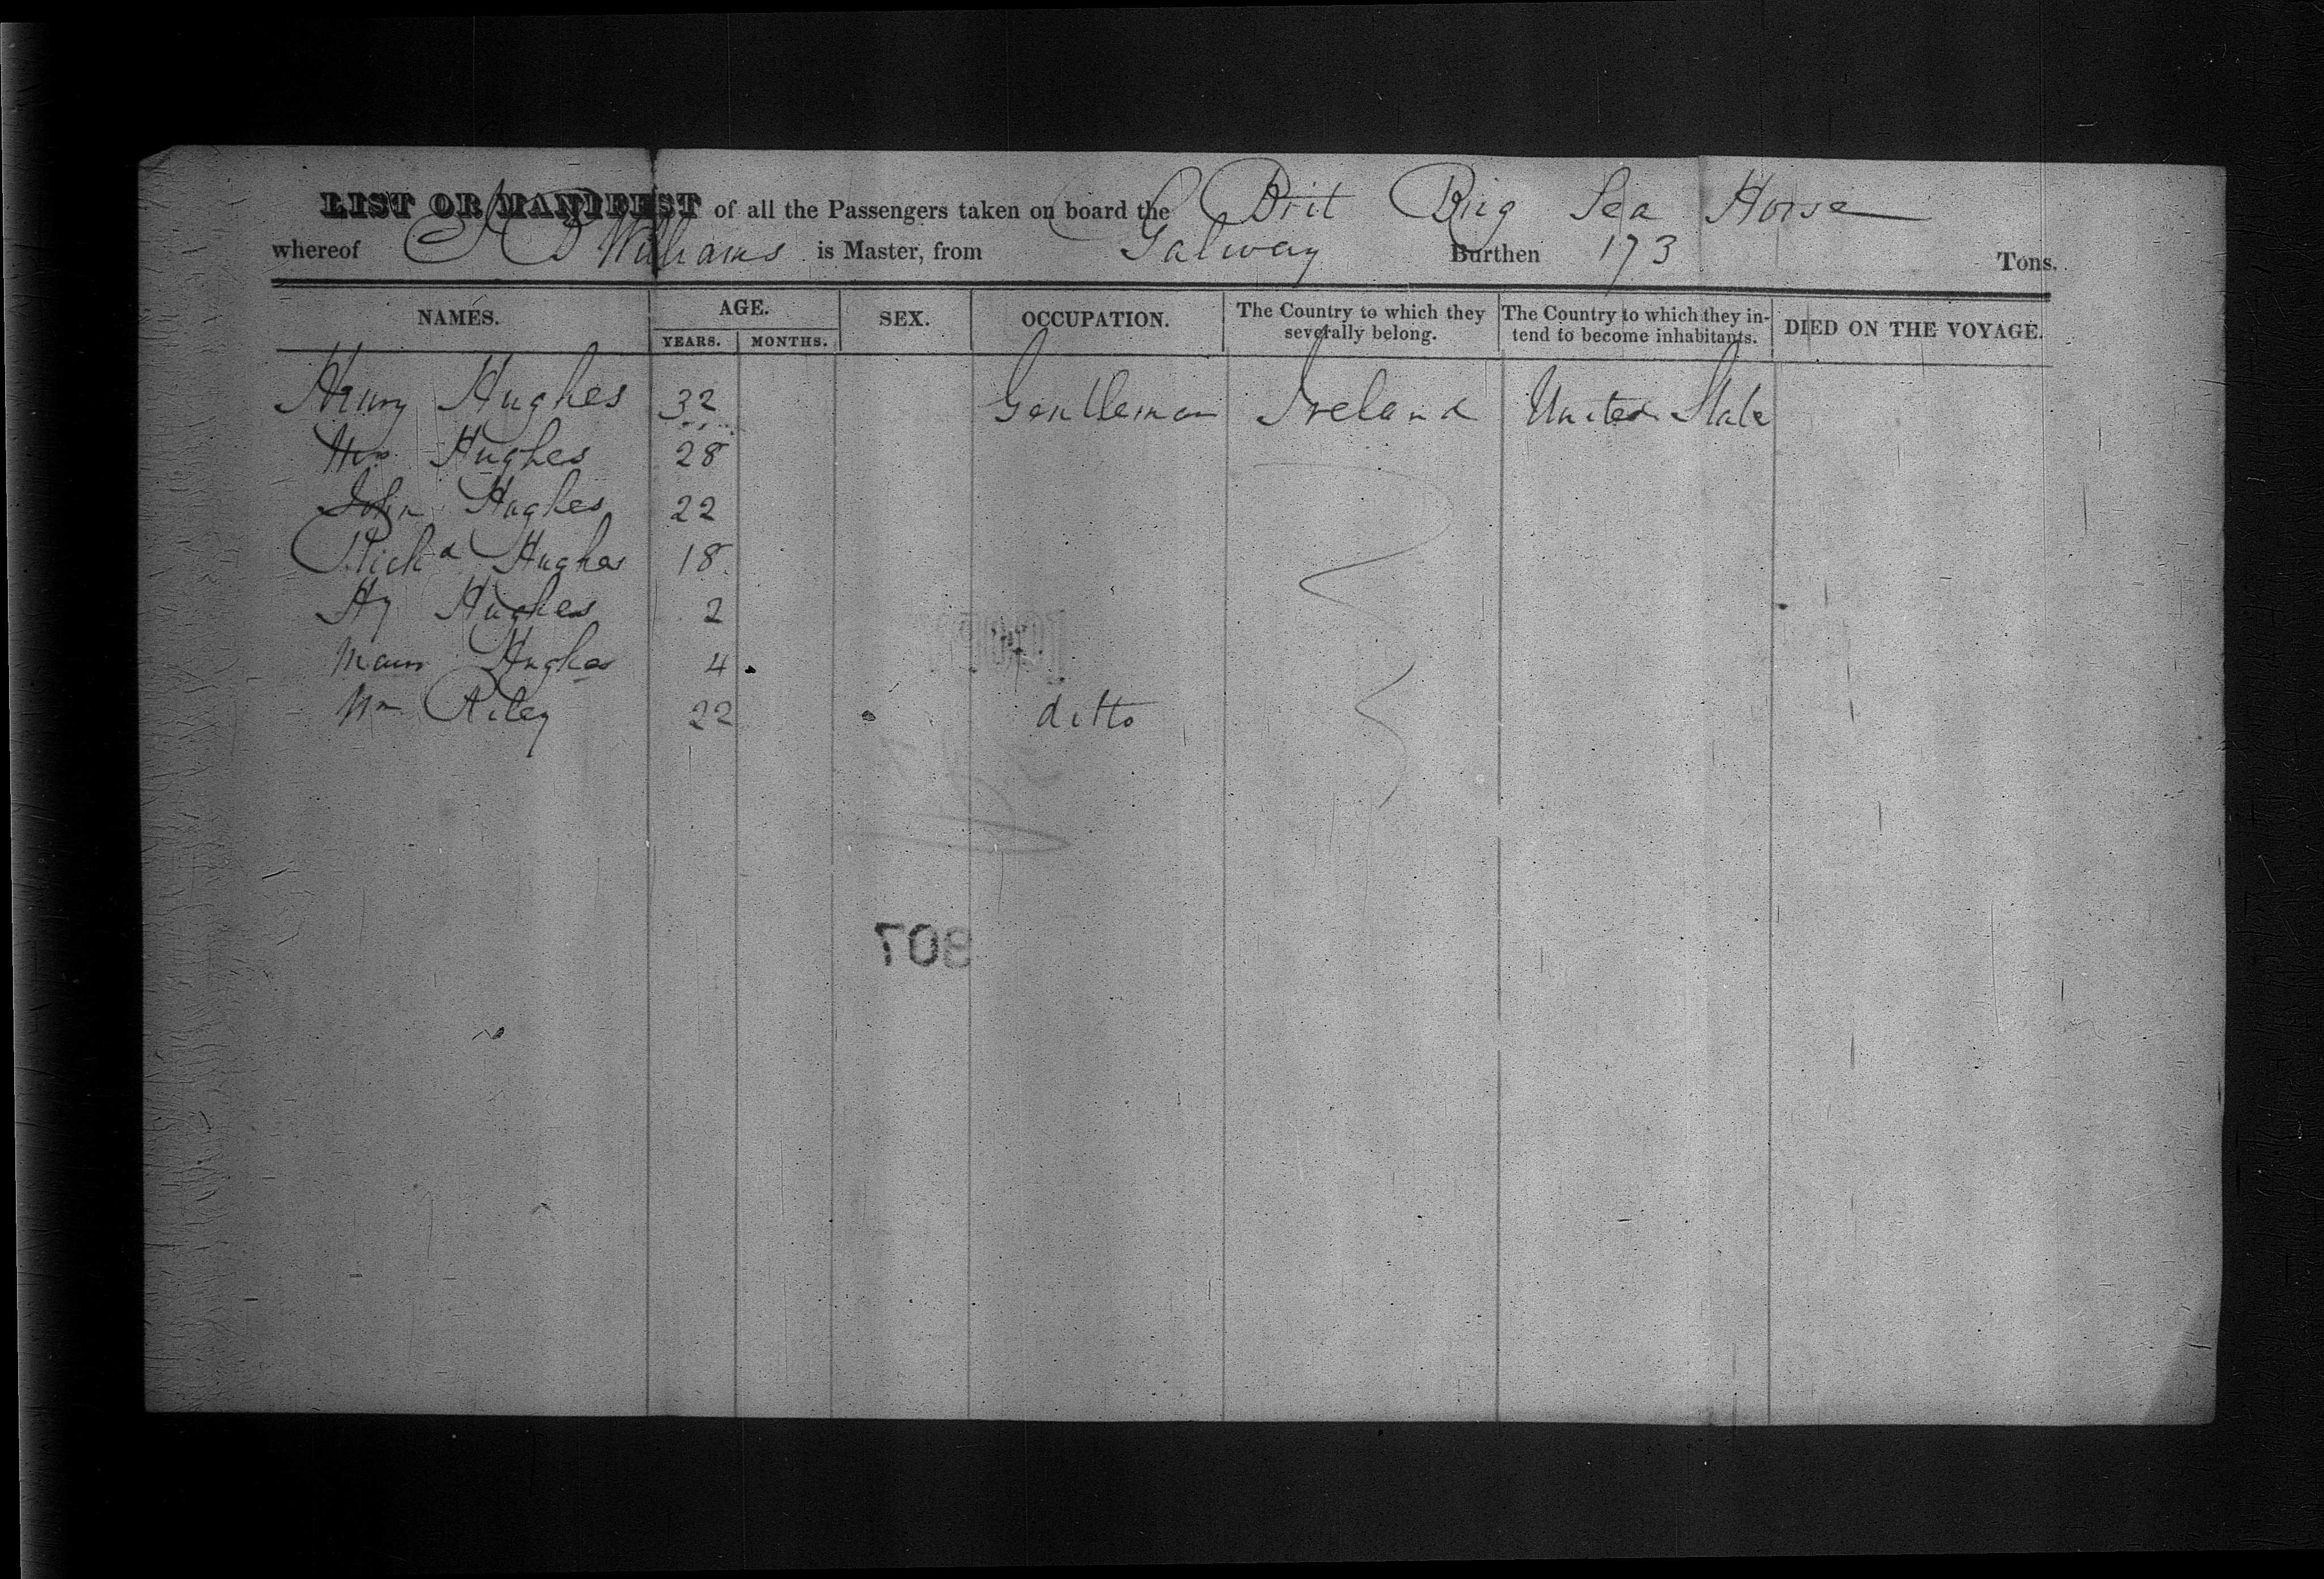 LIST OR MANIFEST of all the Passengers taken on board the Brit Brig Sea Horse
whereof D Williams is Master, from Galway Burthen 173 Tons.
NAMES. AGE. SEX. OCCUPATION. The Country to which they severally belong. The Country to which they intend to become inhabitants. DIED ON THE VOYAGE.
YEARS. MONTHS.
Henry Hughes 32 Gentleman Ireland United State
Mrs Hughes 28
John Hughes 22
Richd Hughes 18
Hy Hughes 2
Hughes 4
Wm Riley 22 ditto
807